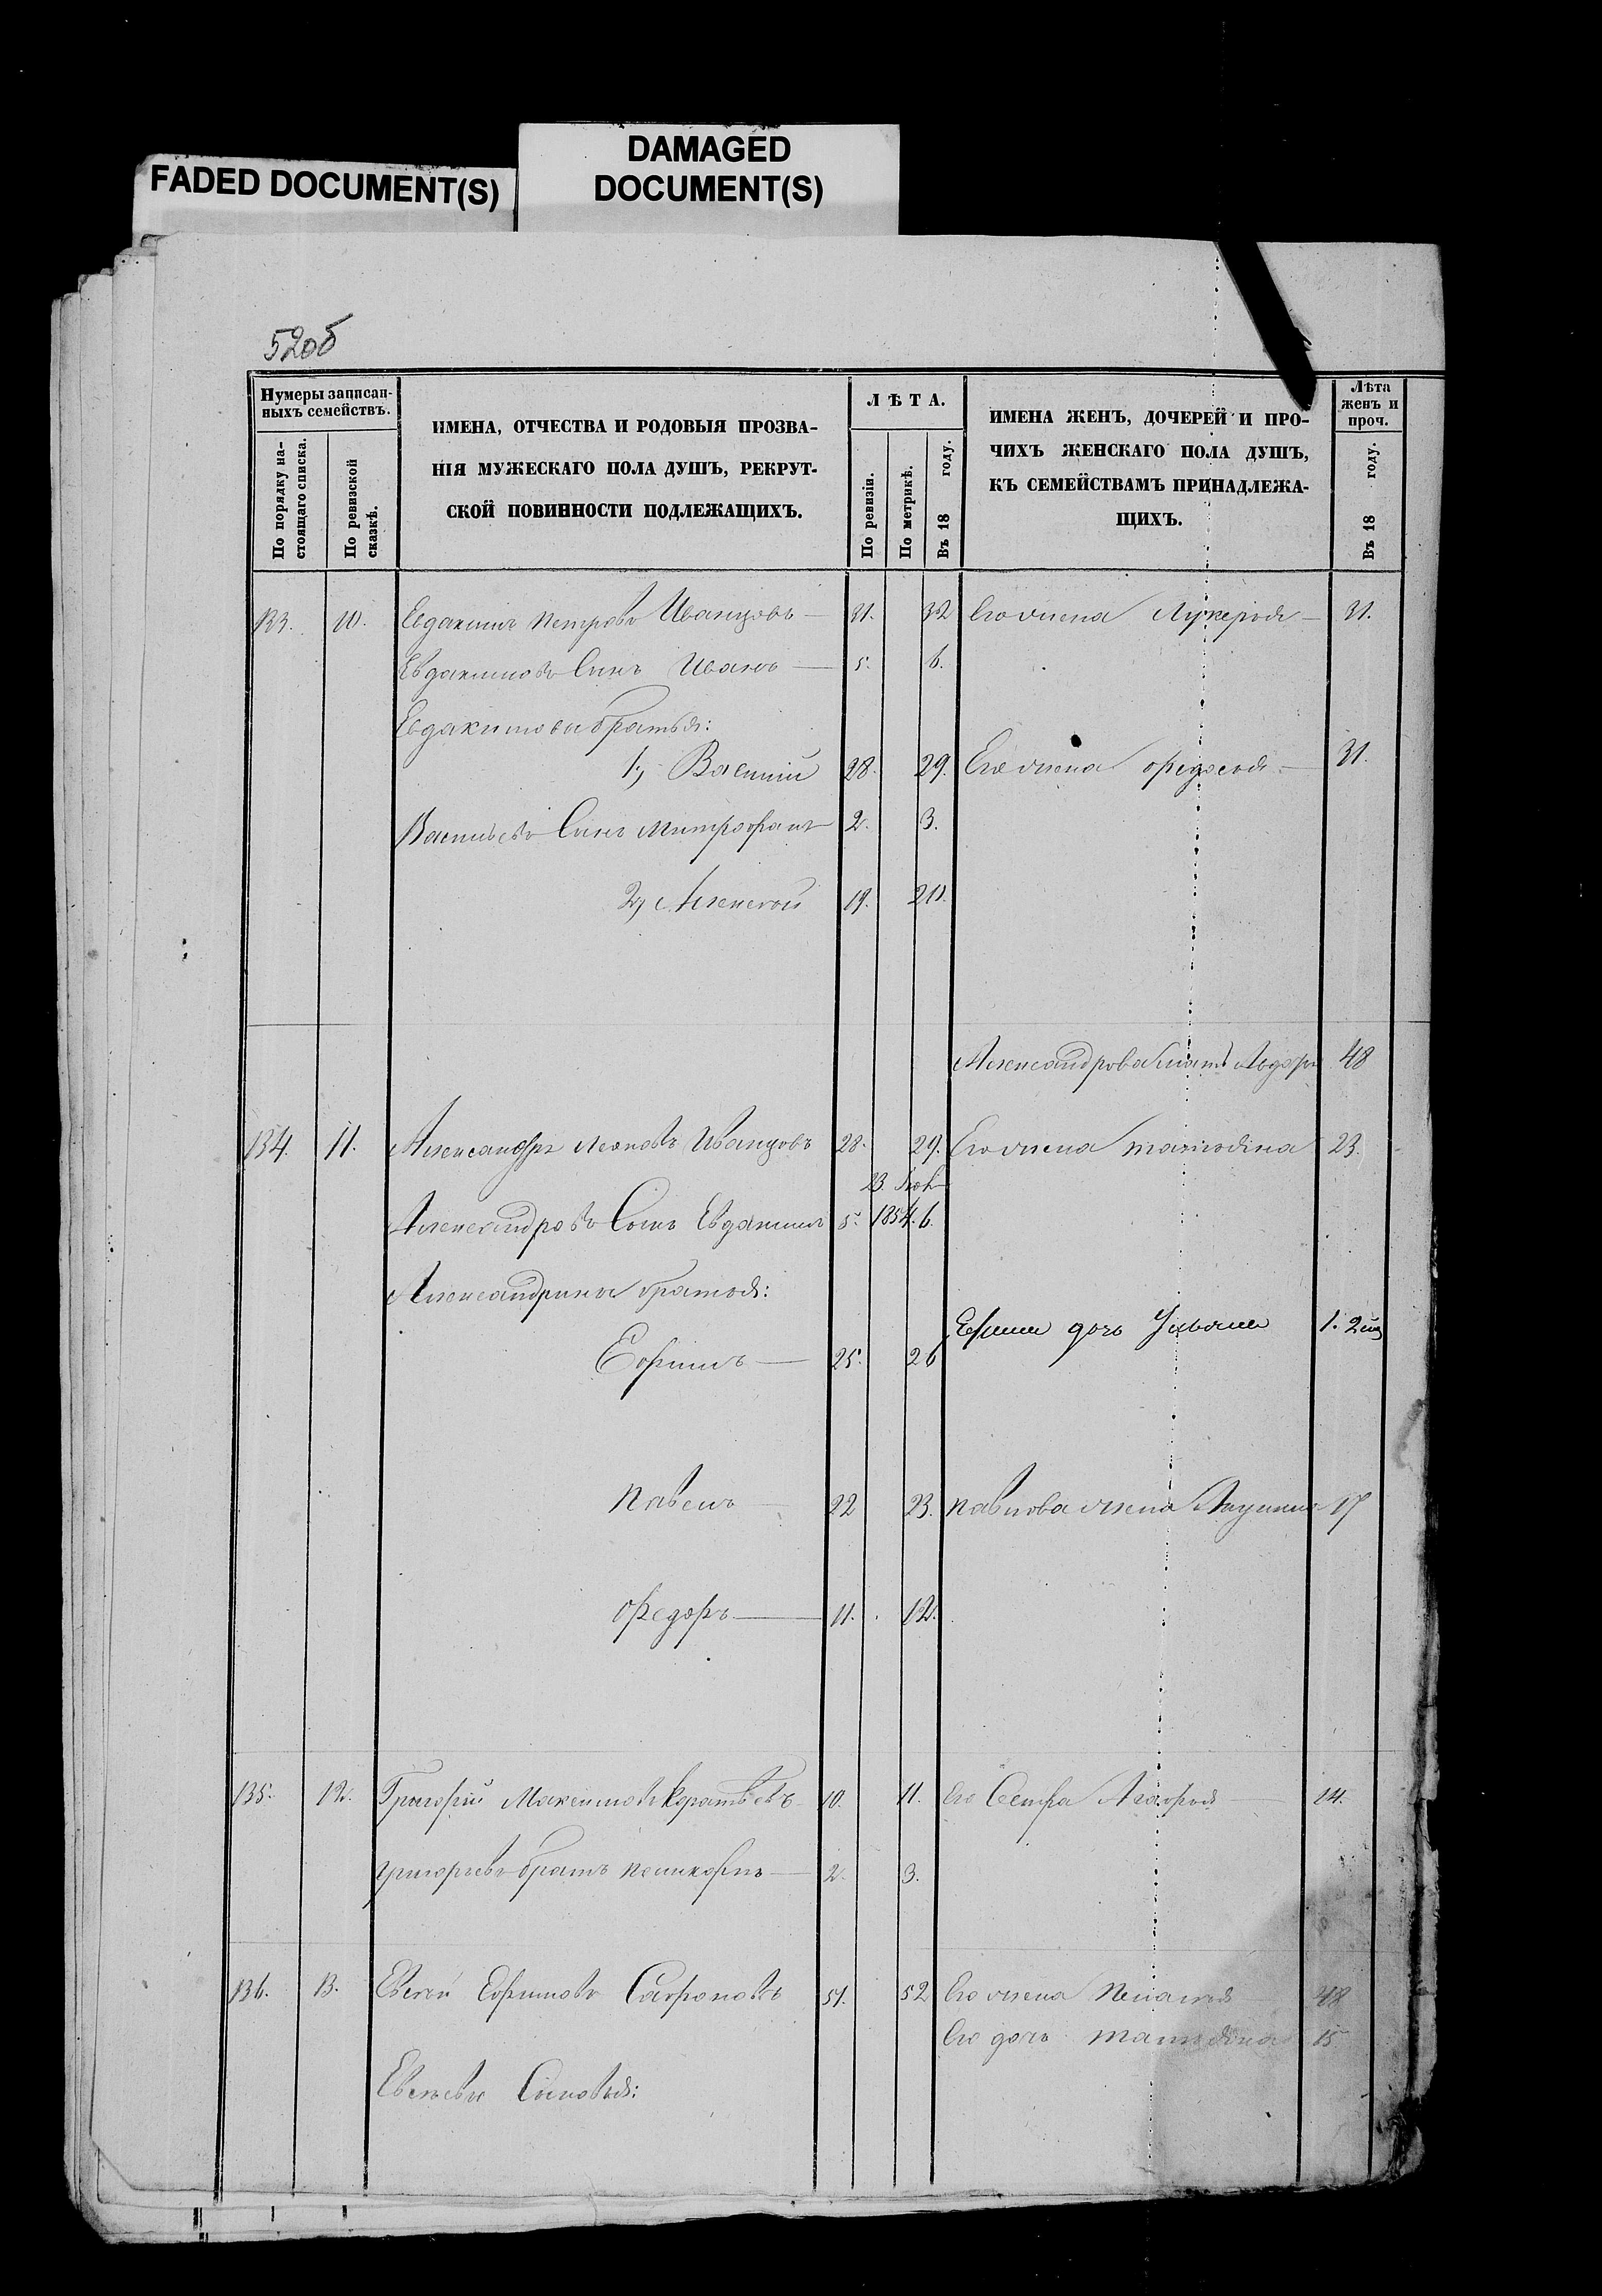 FADED DOCUMENT(S)
DAMAGED
DOCUMENT(S)
52об
Нумеры записан-
ныхъ семействъ.
По порядку на-
стоящаго списка.
По ревизской
сказкѣ.
ИМЕНА, ОТЧЕСТВА И РОДОВЫЯ ПРОЗВА-
НІЯ МУЖЕСКАГО ПОЛА ДУШЪ, РЕКРУТ-
СКОЙ ПОВИННОСТИ ПОДЛЕЖАЩИХЪ.
ЛѢТА.
По ревизіи.
По метрикѣ.
Въ 18 году.
ИМЕНА ЖЕНЪ, ДОЧЕРЕЙ И ПРО-
ЧИХЪ ЖЕНСКАГО ПОЛА ДУШЪ,
КЪ СЕМЕЙСТВАМЪ ПРИНАДЛЕЖА-
ЩИХЪ.
Лѣта
женъ и
проч.
Въ 18 году.
133. 10. Евдакимъ Петровъ Иванцовъ — 31. 32 Его жена Лукерья — 31.
Евдакимовъ Сынъ Иванъ — 5. 6.
Евдакимовы братья:
1, Василій 28. 29. Его жена Федосья — 31.
Васильевъ Сынъ Митрофанъ 2. 3.
2, Алексей 19. 20.
Александрова мать 48
134. 11. Александръ Леоновъ Иванцовъ 28. 29. Его жена Татьяна 23.
23.
Александровъ Сынъ Евдакимъ 5. 1854. 6.
братья:
Ефимъ — 25. 26
дочь Ульяна 1.
Павелъ — 22 23. Павлова жена 17
Федоръ — 11. 12.
135. 12. Григорій Максимовъ 10. 11. Его Сестра Агафья 14.
Григорьевъ братъ Поликарпъ — 2. 3.
136. 13. Евсей Ефимовъ Сафроновъ 51. 52 Его жена Пелагея 48
Его дочь Татьяна 15
Евсеевы Сыновья: